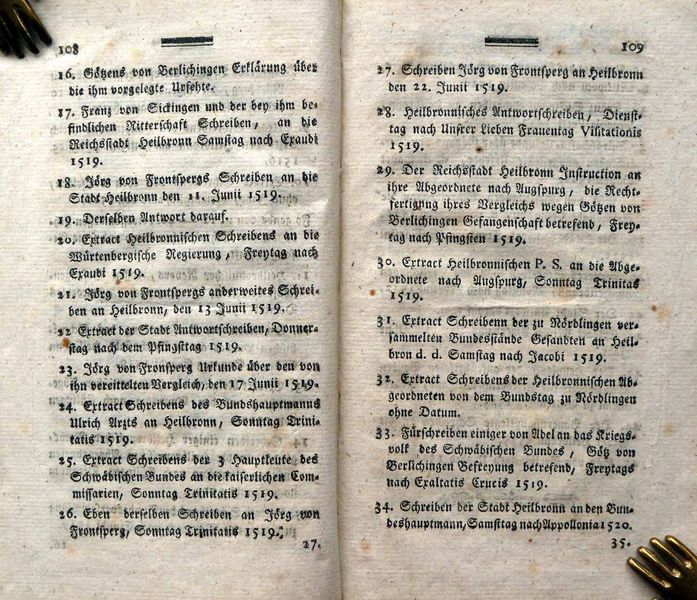 108
16. Götzens von Berlichingen Erklärung über
die ihm vorgelegte Ursehte.
17. Franz von Sickingen und der bey ihm be-
findlichen Ritterschaft Schreiben, an die
Reichsstadt Heilbronn Samstag nach Exaudi
1519.
18. Jörg von Frontspergs Schreiben an die
Stadt Heilbronn den 11. Junii 1519.
19. Derselben Antwort darauf.
20. Extract Heilbronnischen Schreibens an die
Würtenbergische Regierung, Freytag nach
Exaudi 1519.
21. Jörg von Frontspergs anderweites Schrei-
ben an Heilbronn, den 13 Junii 1519.
22 Extract der Stadt Antwortschreiben, Donner-
stag nach dem Pfingsttag 1519.
23. Jörg von Fronsperg Urkunde über den von
ihn vereittelten Vergleich, den 17 Junii 1519.
24. Extract Schreibens des Bundshauptmanns
Ulrich Arzts an Heilbronn, Sonntag Trini-
tatis 1519.
25. Extract Schreibens der 3 Hauptleute des
Schwäbischen Bundes an die kaiserlichen Com-
missarien, Sonntag Trinitatis 1519.
26. Eben derselben Schreiben an Jörg von
Frontsperg, Sonntag Trinitatis 1519.
27.
109
27. Schreiben Jörg von Frontsperg an Heilbronn
den 22. Junii 1519.
28. Heilbronnisches Antwortschreiben, Dienst-
tag nach Unsrer Lieben Frauentag Visitationis
1519.
29. Der Reichsstadt Heilbronn Instruction an
ihre Abgeordnete nach Augspurg, die Recht-
fertigung ihres Vergleichs wegen Götzen von
Berlichingen Gefangenschaft betreffend, Frey-
tag nach Pfingsten 1519.
30. Extract Heilbronnischen P. S. an die Abge-
ordnete nach Augspurg, Sonntag Trinitas
1519.
31. Extract Schreibenn der zu Nördlingen ver-
sammelten Bundesstände Gesandten an Heil-
bron d. d. Samstag nach Jacobi 1519.
32. Extract Schreibens der Heilbronnischen Ab-
geordneten von dem Bundstag zu Nördlingen
ohne Datum.
33. Fürschreiben einiger von Adel an das Kriegs-
volk des Schwäbischen Bundes, Götz von
Berlichingen Befreyung betreffend, Freytags
nach Exaltatis Crucis 1519.
34. Schreiben der Stadt Heilbronn an den Bun-
deshauptmann, Samsttag nach Appollonia 1520.
35.